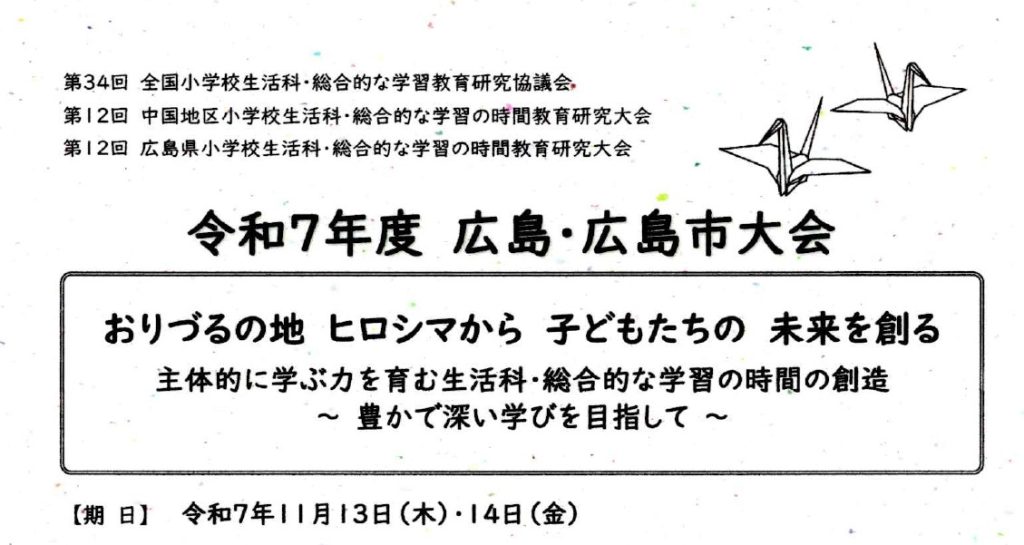 第34回 全国小学校生活科・総合的な学習教育研究協議会
第12回 中国地区小学校生活科・総合的な学習の時間教育研究大会
第12回 広島県小学校生活科・総合的な学習の時間教育研究大会
令和7年度 広島・広島市大会
おりづるの地 ヒロシマから 子どもたちの 未来を創る
主体的に学ぶ力を育む生活科・総合的な学習の時間の創造
～ 豊かで深い学びを目指して ～
【期 日】 令和7年11月13日(木)・14日(金)